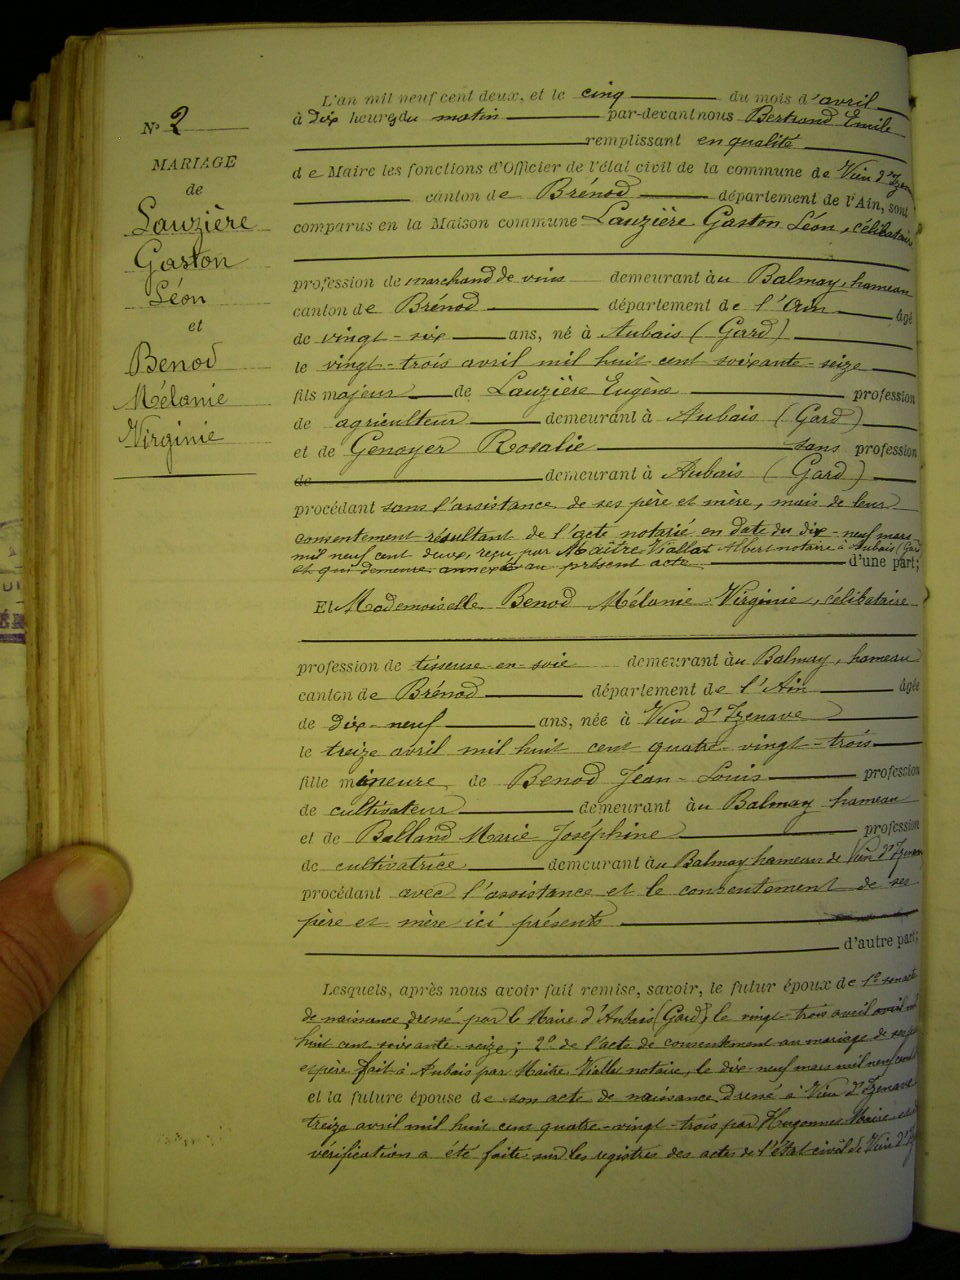 N° 2
MARIAGE
de
Lauzière
Gaston
Léon
et
Benod
Mélanie
Virginie
L'an mil neuf cent deux, et le cinq du mois d'avril
à dix heures du matin par-devant nous Bertrand Emile
remplissant en qualité
de Maire les fonctions d'Officier de l'état civil de la commune de Vieu d'Izenave
canton de Brénod département de l'Ain, sont
comparus en la Maison commune Lauzière Gaston Léon, célibataire
profession de marchand de vins demeurant à au Balmay, hameau
canton de Brénod département de l'Ain âgé
de vingt-six ans, né à Aubais (Gard)
le vingt-trois avril mil huit cent soixante-seize
fils majeur de Lauzière Eugène profession
de agriculteur demeurant à Aubais (Gard)
et de Genoyer Rosalie sans profession
de demeurant à Aubais (Gard)
procédant sans l'assistance de ses père et mère, mais de leur
consentement résultant de l'acte notarié en date du dix-neuf mars
mil neuf cent deux, reçu par Maître Viallat Albert notaire à Aubais (Gard
et qui demeure annexé au présent acte d'une part;
Et Mademoiselle Benod Mélanie Virginie, célibataire
profession de tisseuse en soie demeurant à au Balmay, hameau
canton de Brénod département de l'Ain âgée
de dix-neuf ans, née à Vieu d'Izenave
le treize avril mil huit cent quatre-vingt-trois
fille mineure de Benod Jean-Louis profession
de cultivateur demeurant à au Balmay hameau
et de Balland Marie Joséphine profession
de cultivatrice demeurant à au Balmay hameau de Vieu d'Izenave
procédant avec l'assistance et le consentement de ses
père et mère ici présents
d'autre part;
Lesquels, après nous avoir fait remise, savoir, le futur époux de 1° son acte
de naissance dressé par le Maire d'Aubais (Gard), le vingt-trois avril mil
huit cent soixante-seize; 2° de l'acte de consentement au mariage de ses
et père fait à Aubais par Maître notaire, le dix-neuf mars mil neuf cent
et la future épouse de son acte de naissance dressé à Vieu d'Izenave
treize avril mil huit cent quatre-vingt-trois par Hugonnet Maire
vérification a été faite sur les registres des actes de l'état civil de Vieu d'Iz